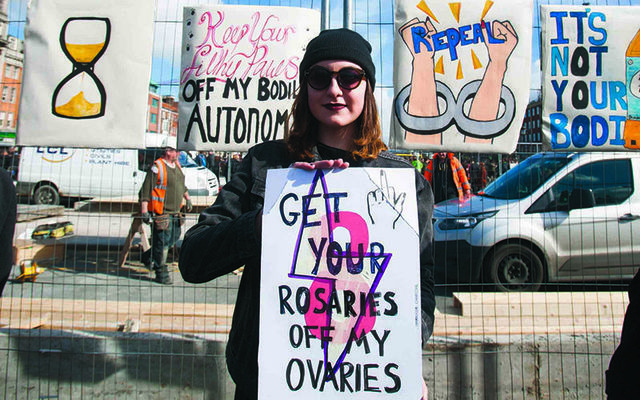 Keep Your
filthy Paws
OFF MY BODILY
AUTONOM
REPEAL
IT'S
NOT
YOUR
BODI
GET
YOUR
ROSARIES
OFF MY
OVARIES